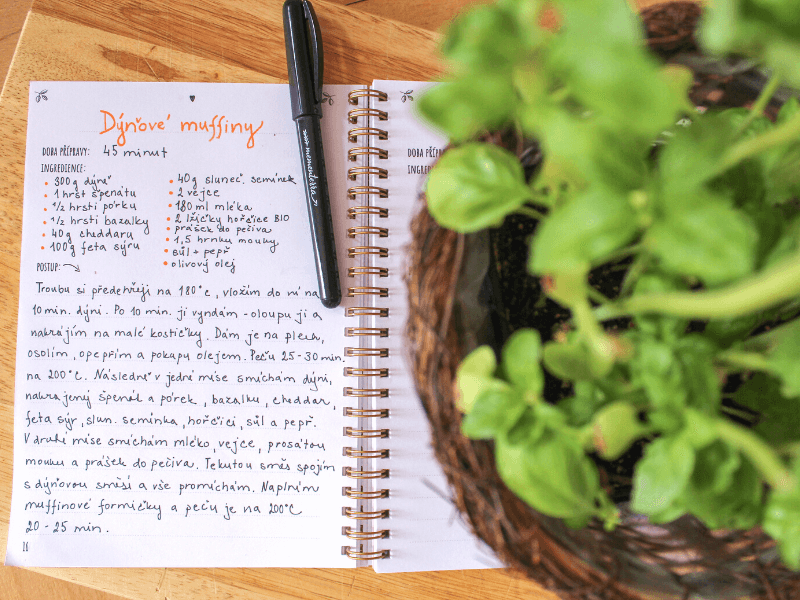 Dýňové muffiny
DOBA PŘÍPRAVY: 45 minut
INGREDIENCE:
• 300g dýně
• 1 hrst špenátu
• 1/2 hrsti pórku
• 1/2 hrsti bazalky
• 40g cheddaru
• 100g feta sýru
• 40g sluneč. semínek
• 2 vejce
• 180 ml mléka
• 2 lžičky hořčice BIO
• prášek do pečiva
• 1,5 hrnku mouky
• sůl + pepř
• olivový olej
POSTUP:
Troubu si předehřeji na 180°C, vložím do ní na
10 min. dýni. Po 10 min. ji vyndám - oloupu ji a
nakrájím na malé kostičky. Dám je na plech,
osolím, opepřím a pokapu olejem. Peču 25-30 min.
na 200°C. Následně v jedné míse smíchám dýni,
nakrájený špenát a pórek, bazalku, cheddar,
feta sýr, slun. semínka, hořčici, sůl a pepř.
V druhé míse smíchám mléko, vejce, prosátou
mouku a prášek do pečiva. Tekutou směs spojím
s dýňovou směsí a vše promíchám. Naplním
muffinové formičky a peču je na 200°C
20 - 25 min.
16
DOBA PŘ
INGRED